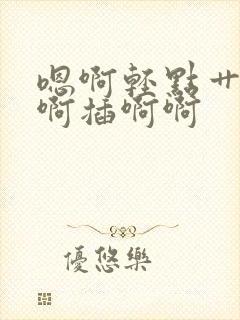 嗯啊輕點艹
啊插啊啊
優悠樂